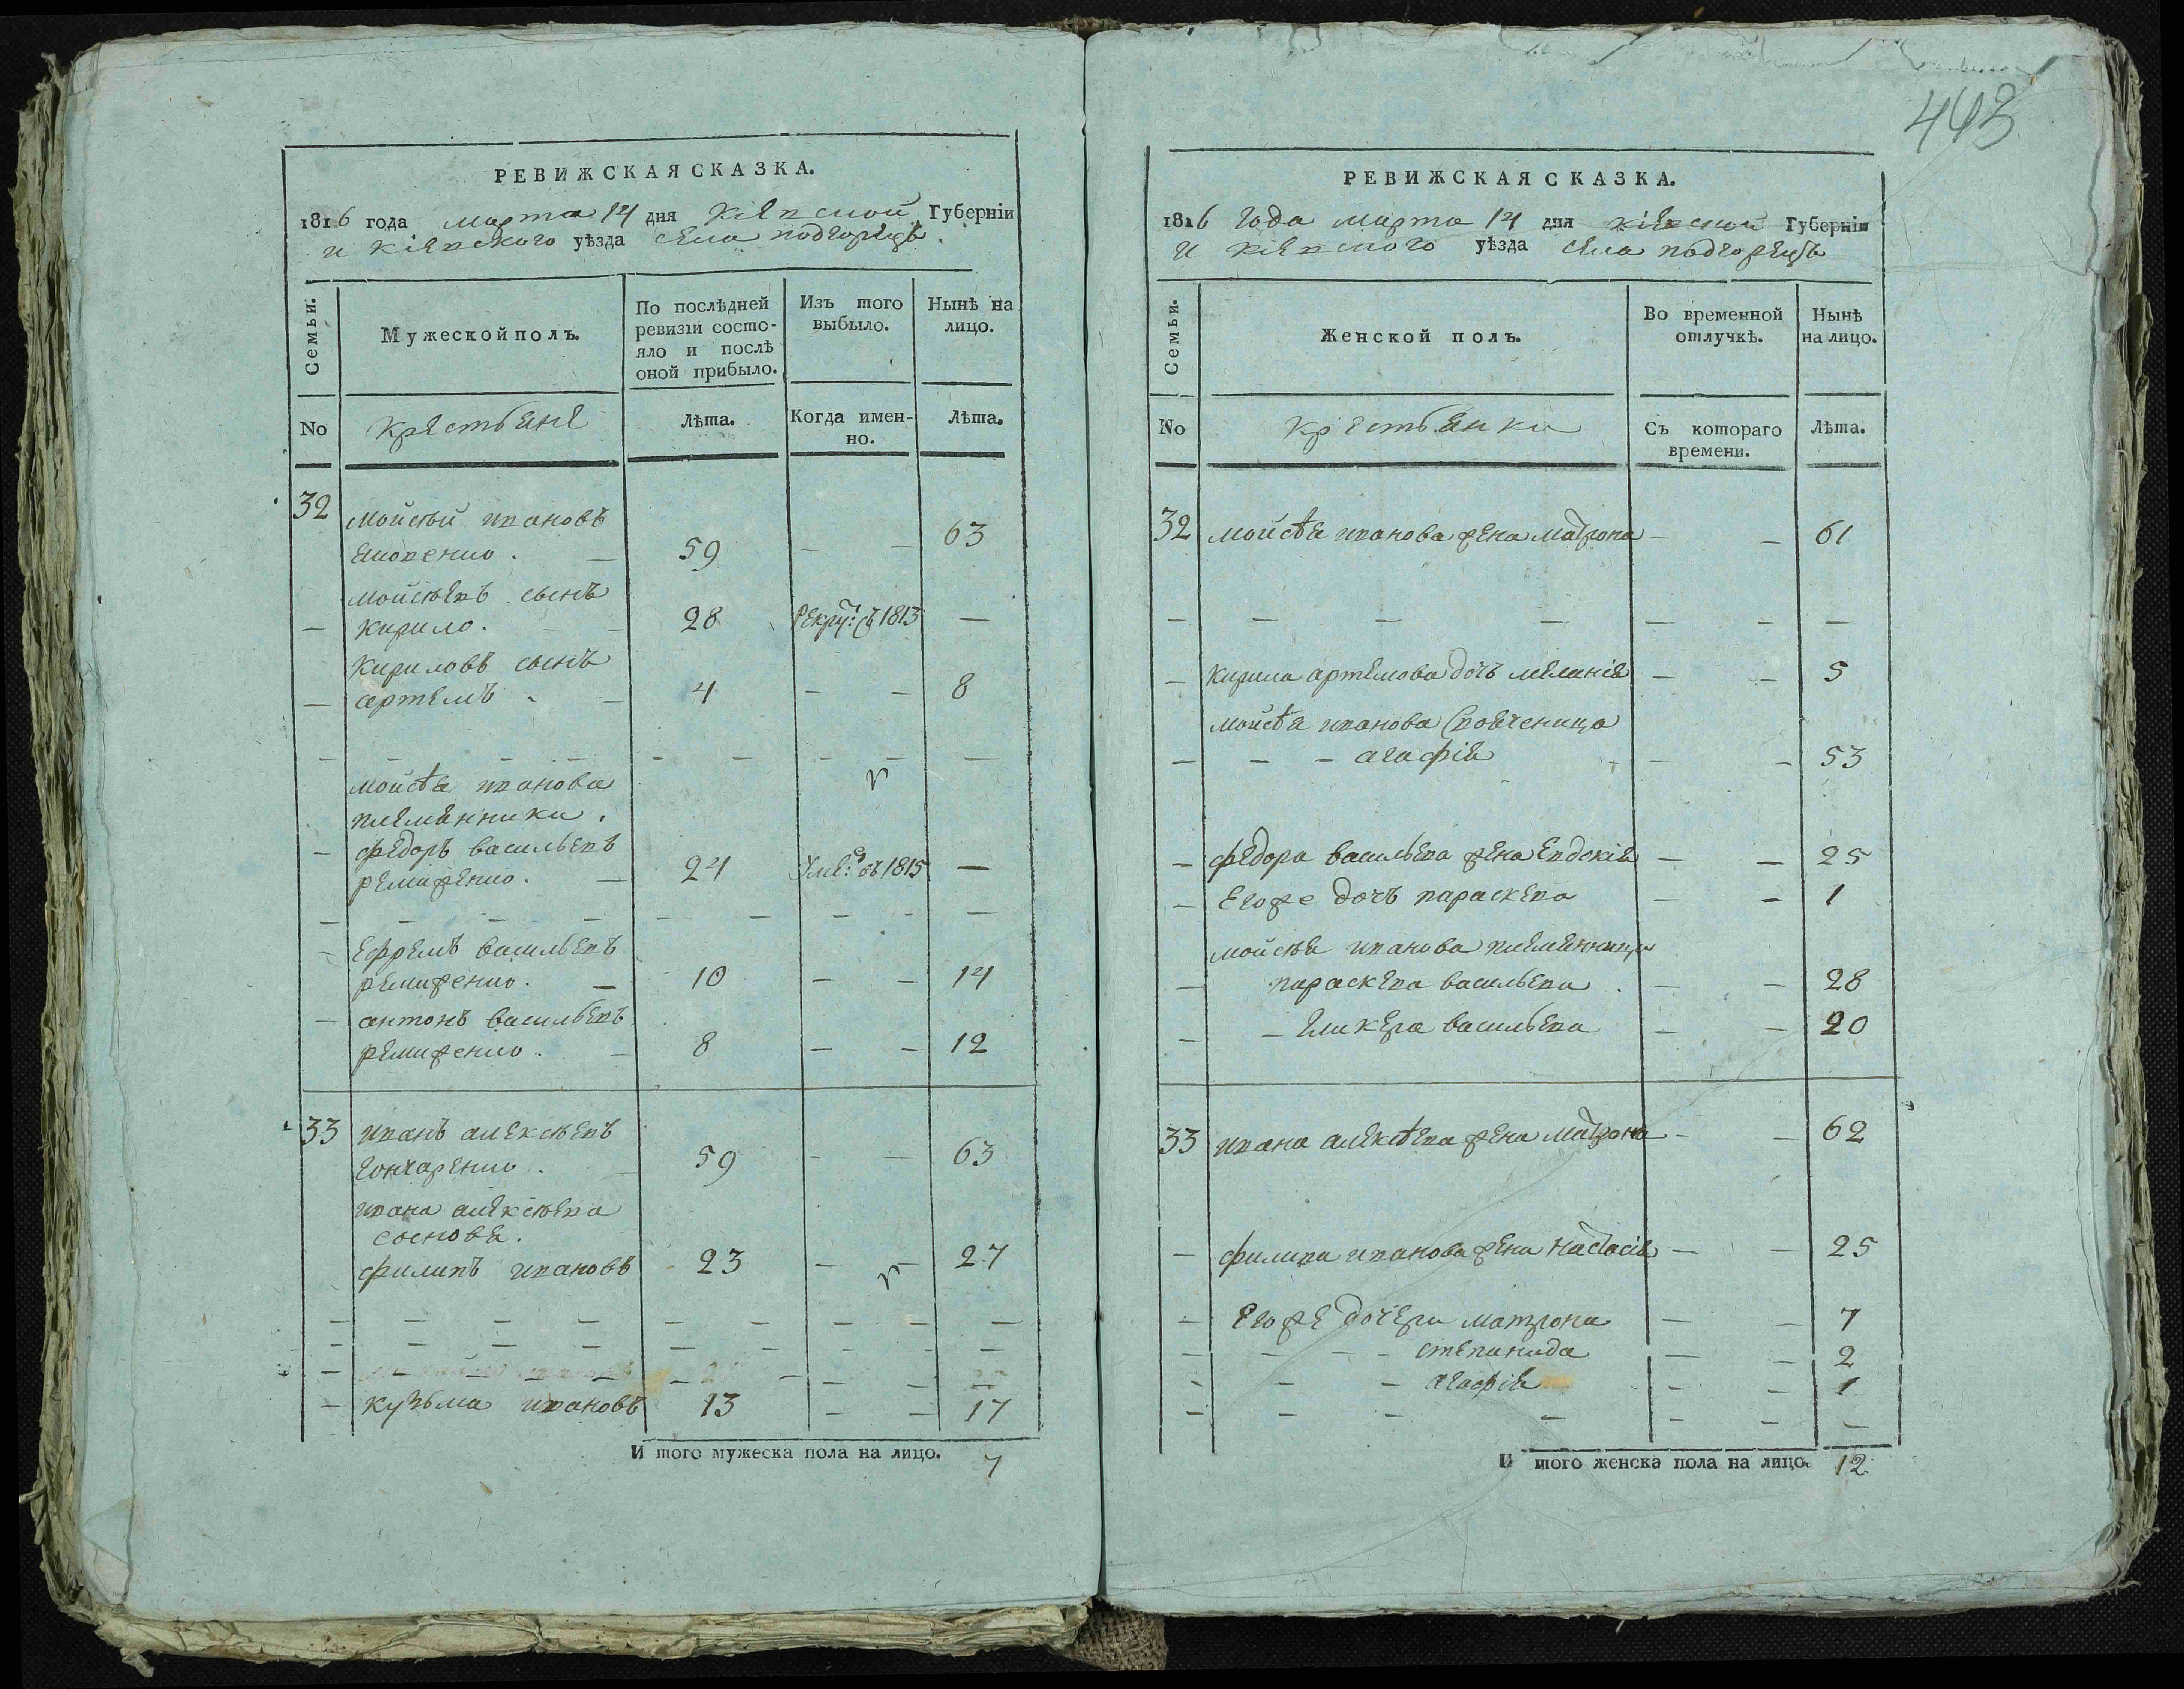 443
РЕВИЖСКАЯ СКАЗКА.
1816 года марта 14 дня Кіевской Губерніи
и Кіевского уѣзда села подгорецъ.
Семьи.
Мужеской полъ.
По послѣдней ревизіи состо-
яло и послѣ
оной прибыло.
Изъ того
выбыло.
Нынѣ на
лицо.
No
крестьяне
Лѣта.
Когда имен-
но.
Лѣта.
32
мойсѣй ивановъ
59 — — 63
мойсѣевъ сынъ
— кирило. — — 28 рекру: въ 1813 —
кириловъ сынъ
— артемъ — 4 — — 8
— — — — — — — —
мойсѣя иванова
племянники.
— федоръ васильевъ
24 Уме: въ 1815 —
— — — — — — — — —
— Ефремъ васильевъ
— 10 — — 14
— антонъ васильевъ
— 8 — — 12
33 иванъ алексѣевъ
гончаренко — 59 — — 63
ивана алексѣева
сыновья.
филипъ ивановъ 23 — — 27
— — — — — — — — —
— — — — — — — — —
— кузьма ивановъ 13 — — 17
И того мужеска пола на лицо. 7
РЕВИЖСКАЯ СКАЗКА.
1816 года марта 14 дня кіевской Губерніи
и кіевского уѣзда села подгорецъ
Семьи.
Женской полъ.
Во временной
отлучкѣ.
Нынѣ
на лицо.
No
крестьянки
Съ котораго
времени.
Лѣта.
32 мойсѣя иванова жена матрона — — 61
— — — — — — —
— кирила артемова дочь меланія — — 5
мойсѣя иванова
— — — агафія — — 53
— федора васильева жена Евдокія — — 25
— Егоже дочъ параскева — — 1
мойсѣя иванова племянницы
— параскева васильева — — 28
— — гликера васильева — — 20
33 ивана алексѣева жена матрона — — 62
— филипа иванова жена настасія — — 25
— Егоже дочери матрона — — 7
— — — — степанида — — 2
— — — агафія — — 1
— — — — — — —
И того женска пола на лицо. 12